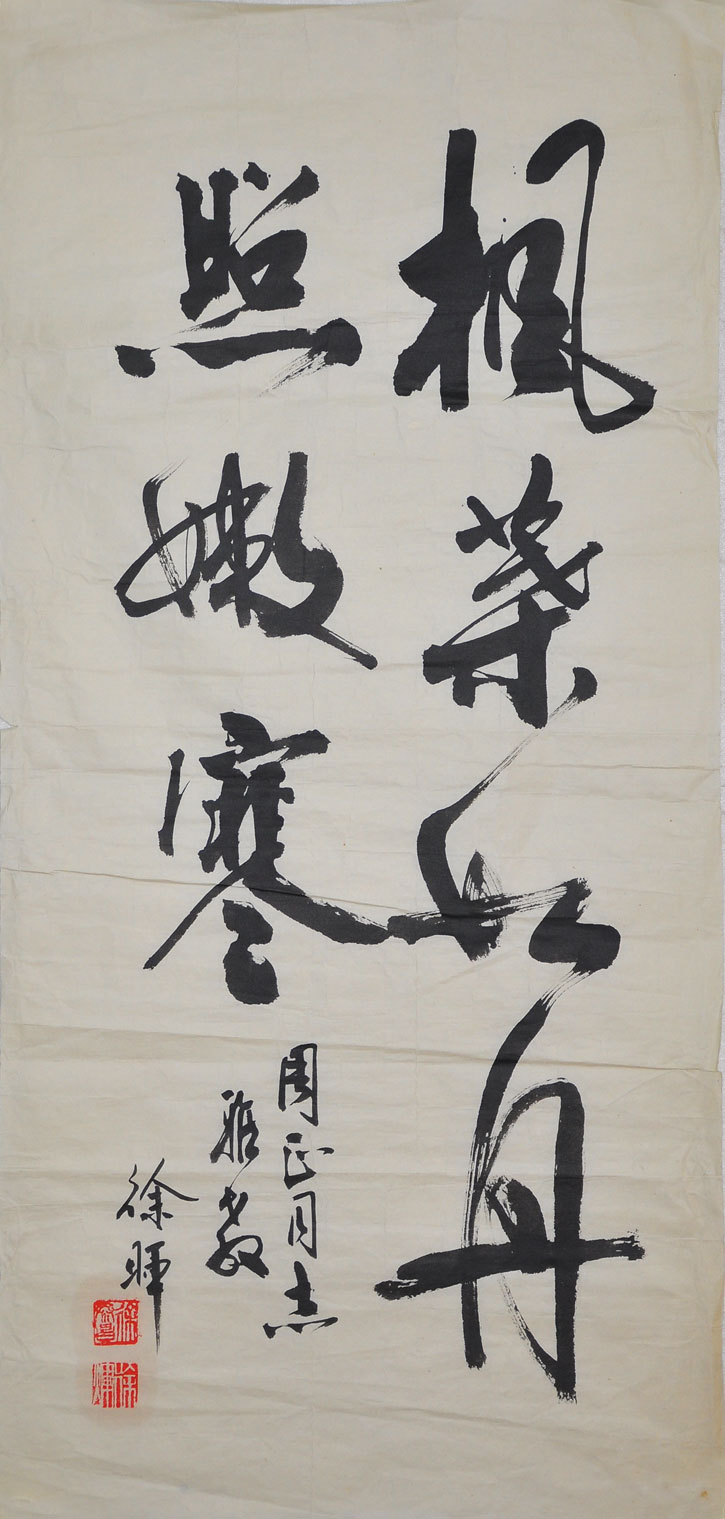 枫葉如丹
照嫩寒
周正同志
雅教
徐晖